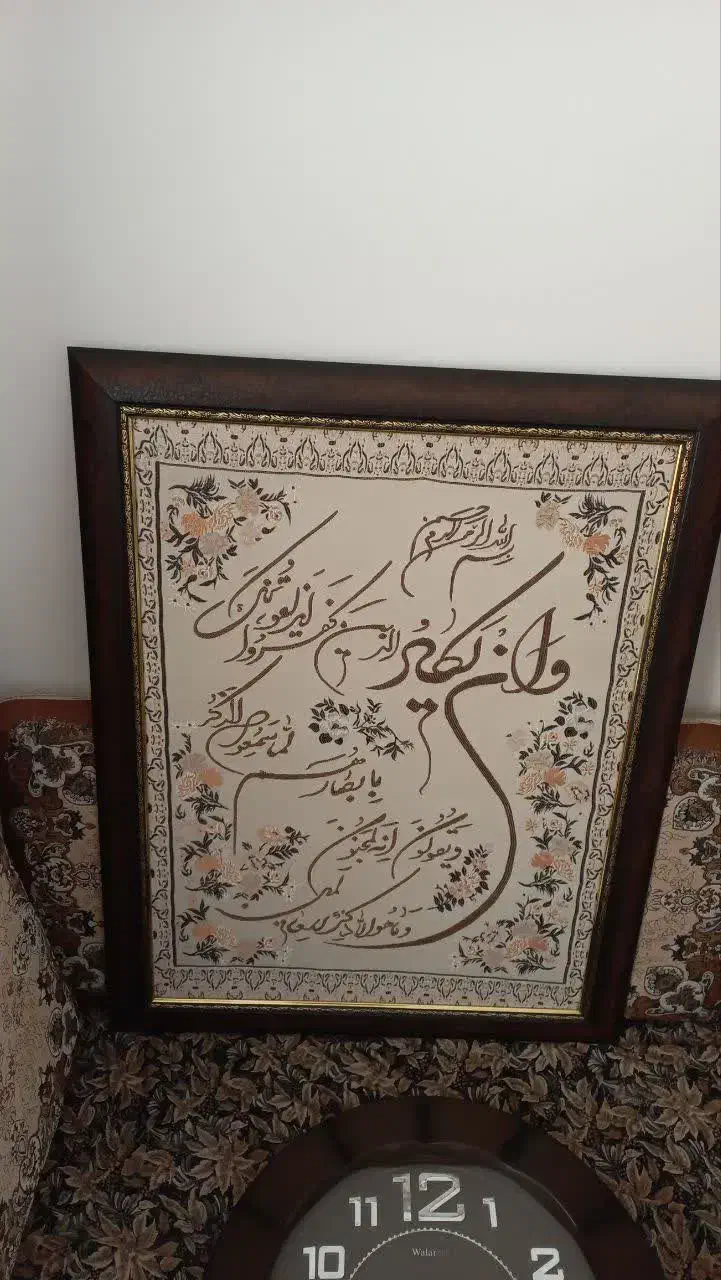 بسم الله الرحمن الرحیم
وان یکاد الذین کفروا لیزلقونک
بابصارهم لما سمعوا الذکر
ویقولون انه لمجنون
وما هو الا ذکر للعالمین
11 12 1
10 2